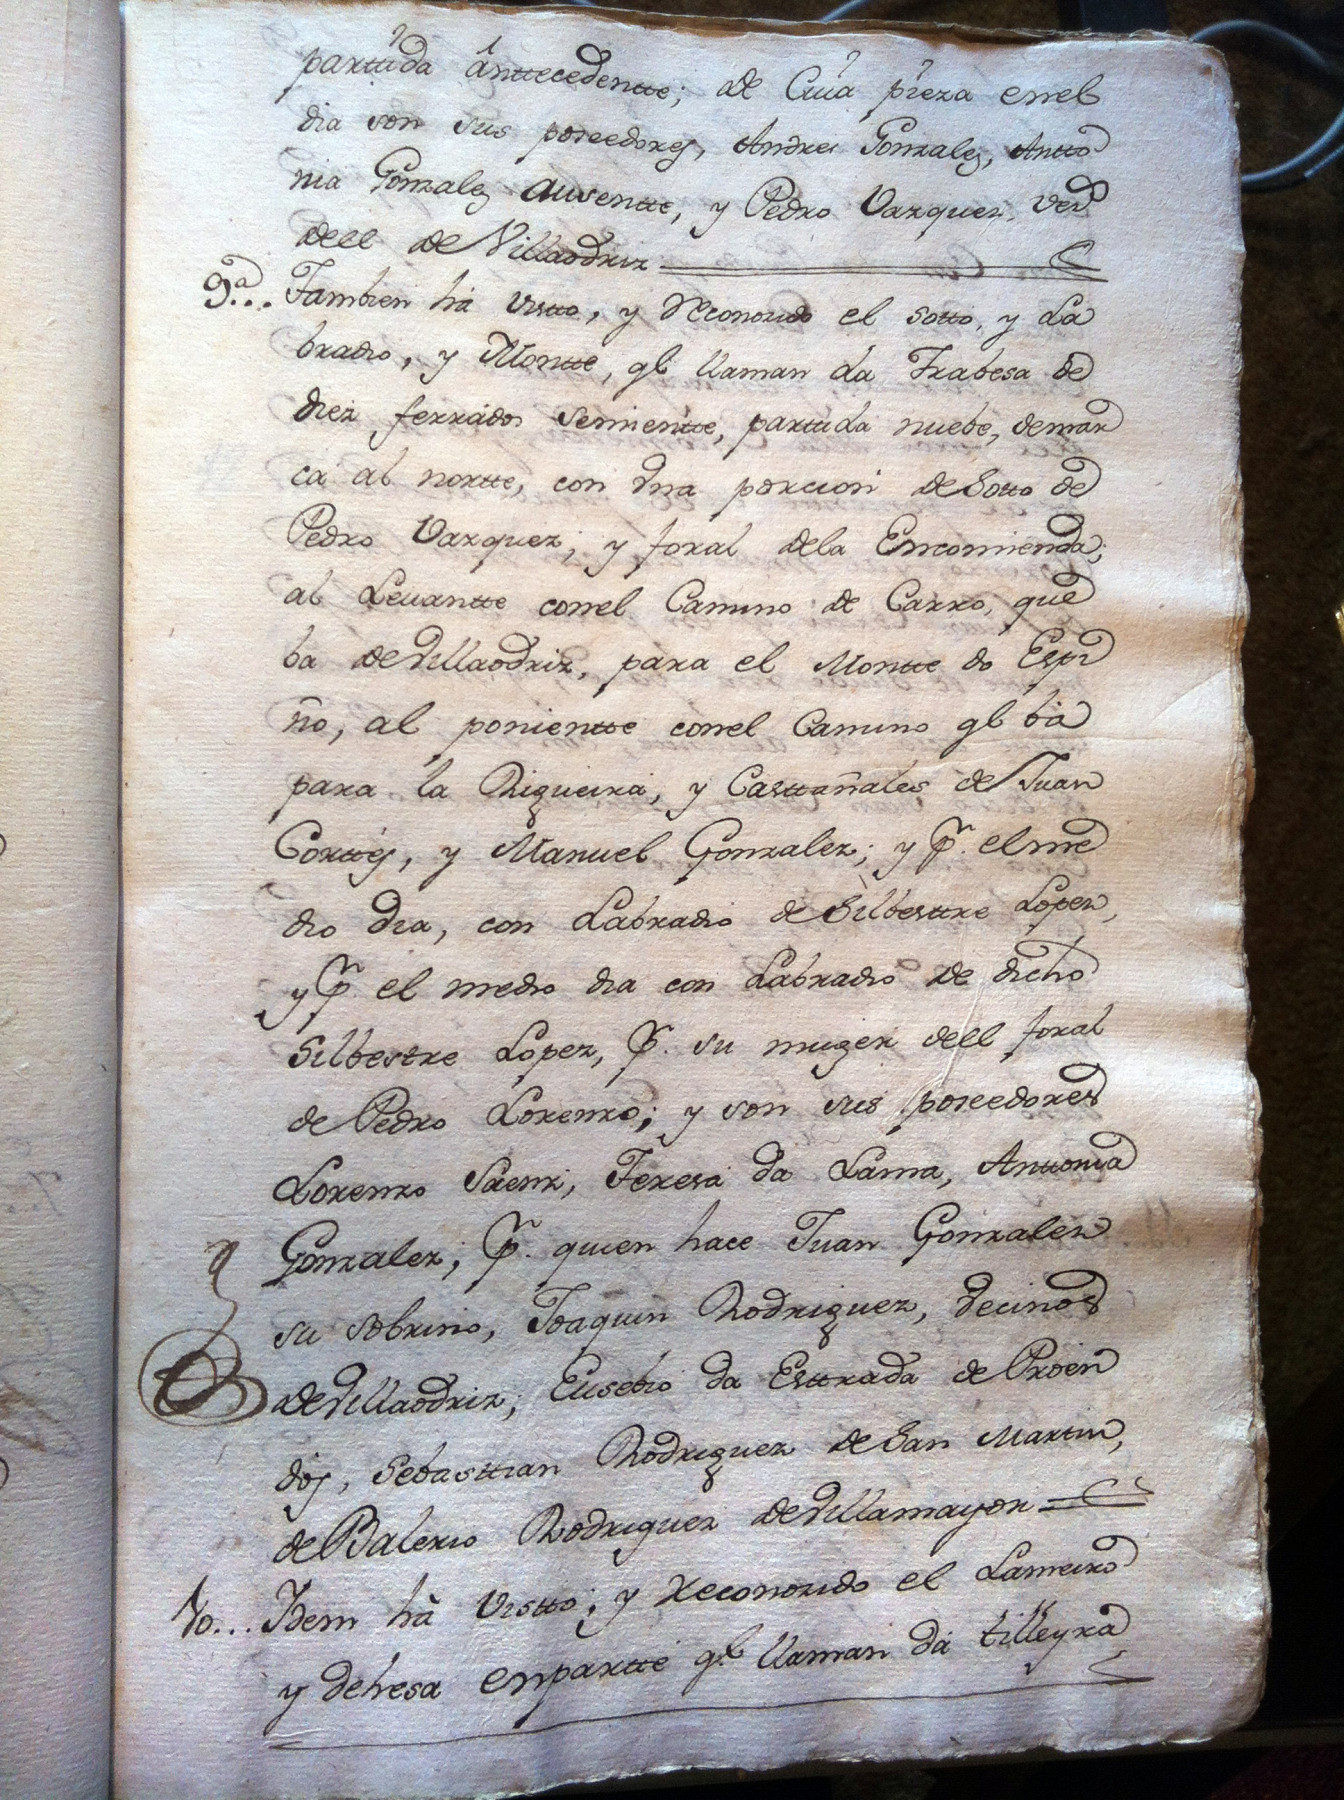 partida ânttecedentte; de Cuia pieza enel
dia son sus poseedores, Andres Gonzalez, Antto
nia Gonzalez ausentte, y Pedro Vazquez, vez.os
dell de Villaodriz
9.a... Tambien hà vistto, y Reconozido el sotto, y La
bradio, y Montte, q.e llaman da Trabesa de
diez ferrados semientte, partida nuebe, demar
ca al nortte, con Vna porcion de Sotto de
Pedro Vazquez; y foral dela Encomienda;
al Levantte conel Camino de Carro, que
ba de Villaodriz, para el Montte do Espi
ño, al ponientte conel Camino q.e bà
para la Rigueira, y Casttañales de Juan
Corttes, y Manuel Gonzalez; y p.r el me
dio dia, con Labradio de Silbesttre Lopez,
y p.r el medio dia con Labradio de dicho
Silbestre Lopez, p.r su muger dell foral
de Pedro Lorenzo; y son sus poseedores
Lorenzo Saenz, Teresa da Lama, Anttonia
Gonzalez; p.r quien hace Juan Gonzalez
su sobrino, Joaquin Rodriguez, vecinos
de Villaodriz; Eusebio da Esttrada de Proen
dos, Sebasttian Rodriguez de San Martin,
de Balerio Rodriguez de Villamayor
10... Idem hà Vistto; y Reconozido el Lameiro
y dehesa enpartte q.e llaman da tilleyra